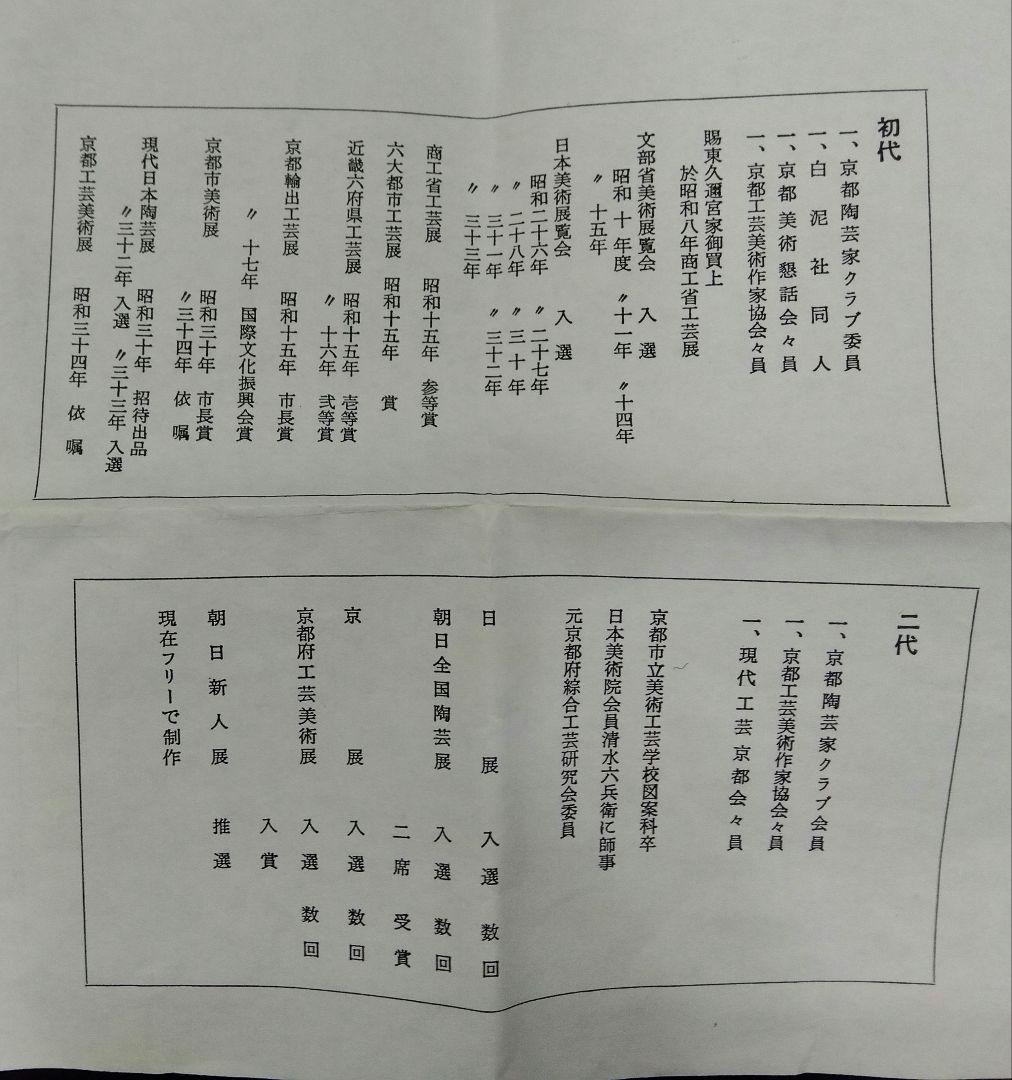 初代
一、京都陶芸家クラブ委員
一、白泥社同人
一、京都美術懇話会々員
一、京都工芸美術作家協会々員
賜東久邇宮家御買上
於昭和八年商工省工芸展
文部省美術展覧会 入選
昭和十年度 〃十一年 〃十四年
〃 十五年
日本美術展覧会 入選
昭和二十六年 〃二十七年
〃 二十八年 〃三十年
〃 三十一年 〃三十二年
〃 三十三年
商工省工芸展 昭和十五年 参等賞
六大都市工芸展 昭和十五年 賞
近畿六府県工芸展 昭和十五年 壱等賞
〃 十六年 弐等賞
京都輸出工芸展 昭和十五年 市長賞
〃 十七年 国際文化振興会賞
京都市美術展 昭和三十年 市長賞
〃三十四年 依嘱
現代日本陶芸展 昭和三十年 招待出品
〃三十二年 入選 〃三十三年 入選
京都工芸美術展 昭和三十四年 依嘱
二代
一、京都陶芸家クラブ会員
一、京都工芸美術作家協会々員
一、現代工芸京都会々員
京都市立美術工芸学校図案科卒
日本美術院会員清水六兵衛に師事
元京都府綜合工芸研究会委員
日展 入選数回
朝日全国陶芸展 入選数回
二席受賞
京展 入選数回
京都府工芸美術展 入選数回
入賞
朝日新人展 推選
現在フリーで制作